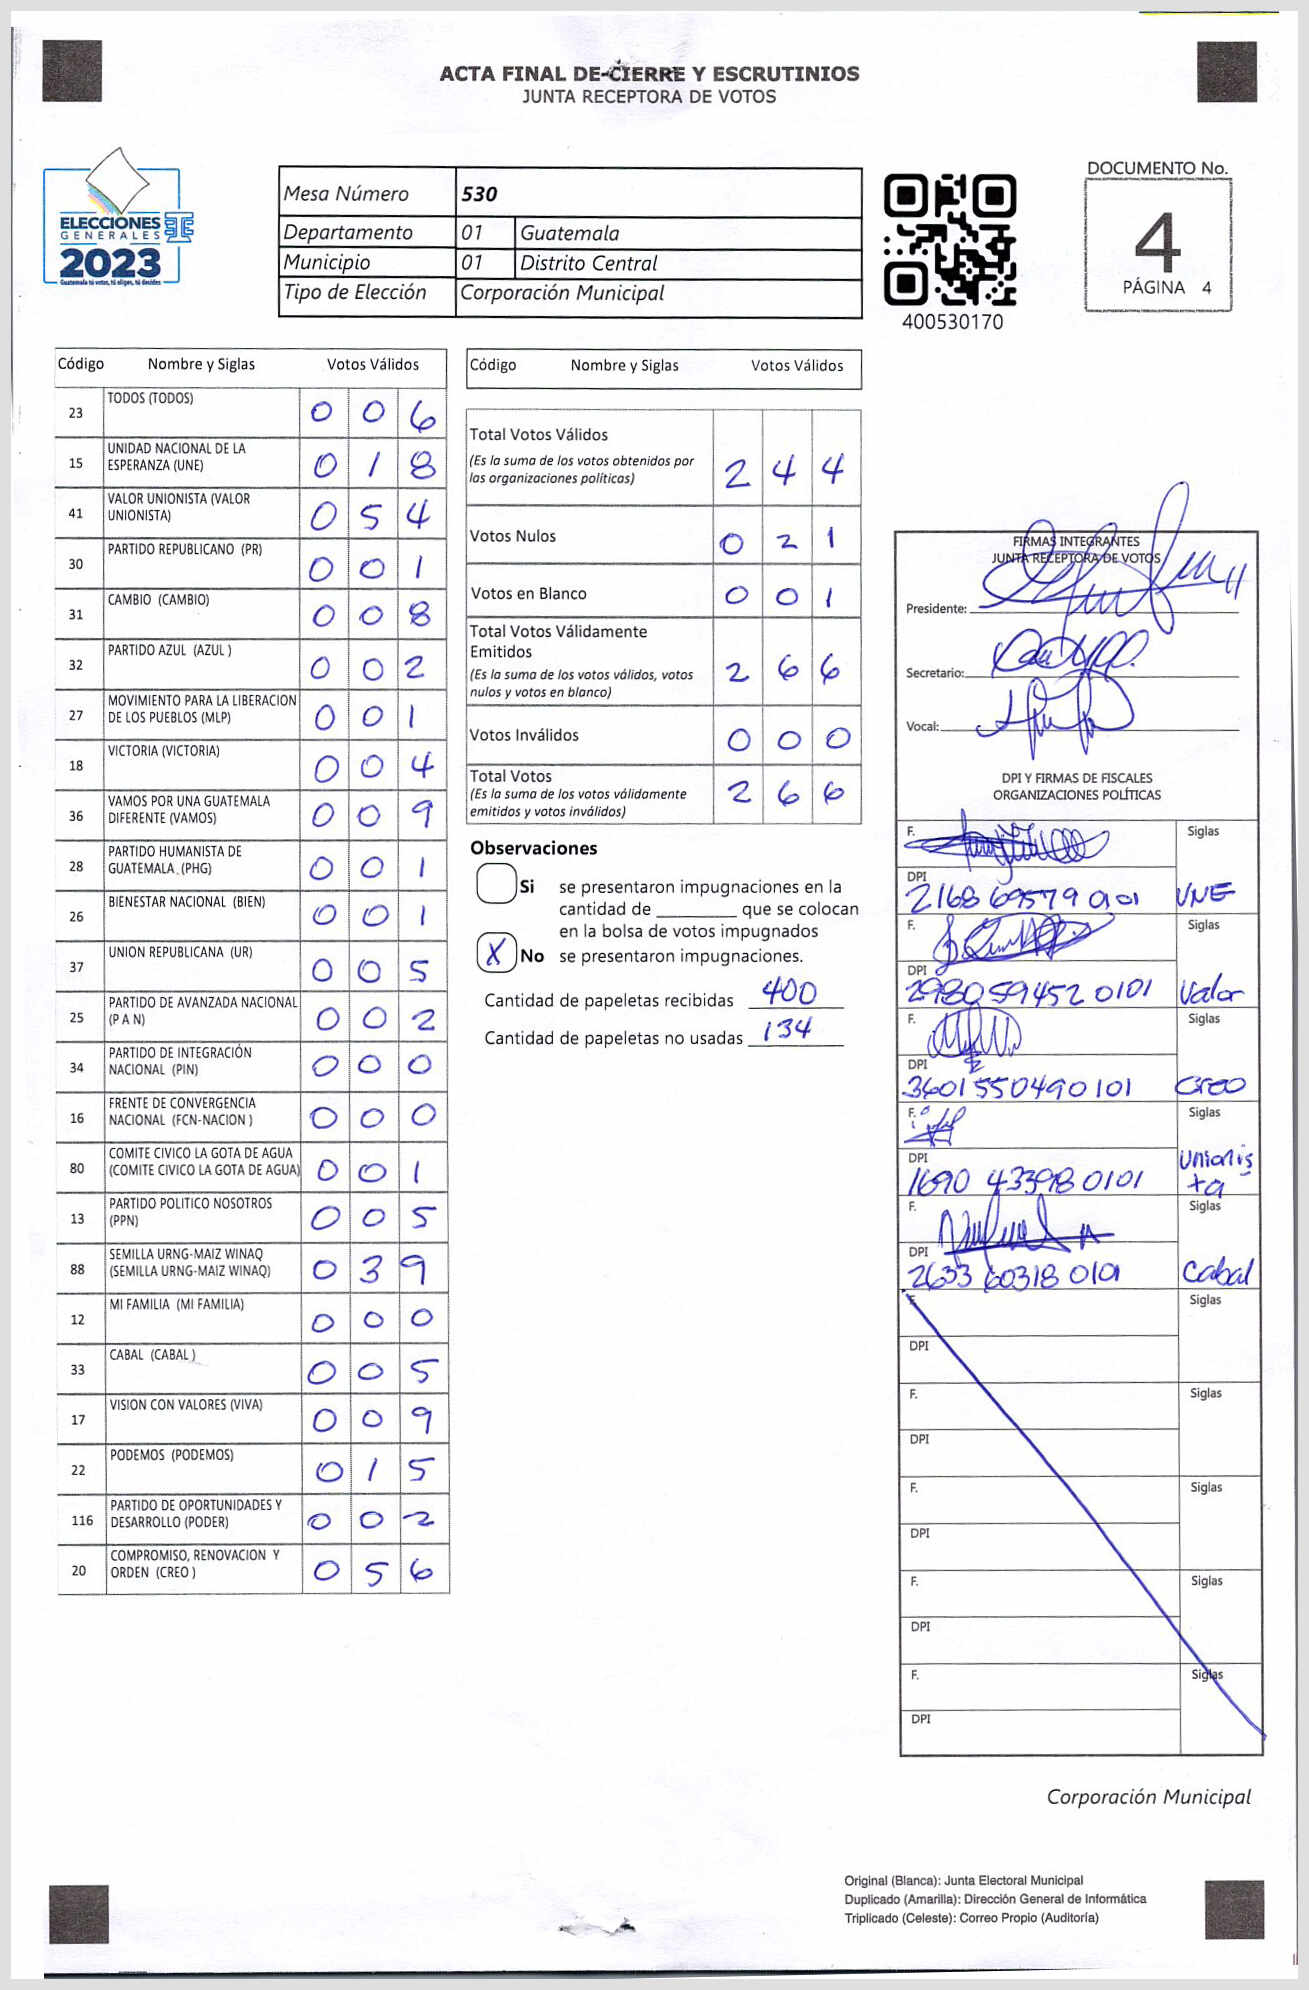 ACTA FINAL DE CIERRE Y ESCRUTINIOS
JUNTA RECEPTORA DE VOTOS
ELECCIONES
GENERALES
2023
Guatemala tú votas, tú eliges, tú decides
Mesa Número 530
Departamento 01 Guatemala
Municipio 01 Distrito Central
Tipo de Elección Corporación Municipal
400530170
DOCUMENTO No.
4
PÁGINA 4
Código Nombre y Siglas Votos Válidos
23 TODOS (TODOS) 0 0 6
15 UNIDAD NACIONAL DE LA
ESPERANZA (UNE) 0 1 8
41 VALOR UNIONISTA (VALOR
UNIONISTA) 0 5 4
30 PARTIDO REPUBLICANO (PR) 0 0 1
31 CAMBIO (CAMBIO) 0 0 8
32 PARTIDO AZUL (AZUL ) 0 0 2
27 MOVIMIENTO PARA LA LIBERACION
DE LOS PUEBLOS (MLP) 0 0 1
18 VICTORIA (VICTORIA) 0 0 4
36 VAMOS POR UNA GUATEMALA
DIFERENTE (VAMOS) 0 0 9
28 PARTIDO HUMANISTA DE
GUATEMALA (PHG) 0 0 1
26 BIENESTAR NACIONAL (BIEN) 0 0 1
37 UNION REPUBLICANA (UR) 0 0 5
25 PARTIDO DE AVANZADA NACIONAL
(P A N) 0 0 2
34 PARTIDO DE INTEGRACIÓN
NACIONAL (PIN) 0 0 0
16 FRENTE DE CONVERGENCIA
NACIONAL (FCN-NACION ) 0 0 0
80 COMITE CIVICO LA GOTA DE AGUA
(COMITE CIVICO LA GOTA DE AGUA) 0 0 1
13 PARTIDO POLITICO NOSOTROS
(PPN) 0 0 5
88 SEMILLA URNG-MAIZ WINAQ
(SEMILLA URNG-MAIZ WINAQ) 0 3 9
12 MI FAMILIA (MI FAMILIA) 0 0 0
33 CABAL (CABAL ) 0 0 5
17 VISION CON VALORES (VIVA) 0 0 9
22 PODEMOS (PODEMOS) 0 1 5
116 PARTIDO DE OPORTUNIDADES Y
DESARROLLO (PODER) 0 0 2
20 COMPROMISO, RENOVACION Y
ORDEN (CREO ) 0 5 6
Código Nombre y Siglas Votos Válidos
Total Votos Válidos
(Es la suma de los votos obtenidos por
las organizaciones políticas) 2 4 4
Votos Nulos 0 2 1
Votos en Blanco 0 0 1
Total Votos Válidamente
Emitidos
(Es la suma de los votos válidos, votos
nulos y votos en blanco) 2 6 6
Votos Inválidos 0 0 0
Total Votos
(Es la suma de los votos válidamente
emitidos y votos inválidos) 2 6 6
Observaciones
Si se presentaron impugnaciones en la
cantidad de ________ que se colocan
en la bolsa de votos impugnados
X No se presentaron impugnaciones.
Cantidad de papeletas recibidas 400
Cantidad de papeletas no usadas 134
FIRMAS INTEGRANTES
JUNTA RECEPTORA DE VOTOS
Presidente:
Secretario:
Vocal:
DPI Y FIRMAS DE FISCALES
ORGANIZACIONES POLÍTICAS
F. Siglas
DPI
2168 69579 0101 UNE
F. Siglas
DPI
2980594520101 Valor
F. Siglas
DPI
3601550490101 Creo
F. Siglas
DPI Unionis
1690 433980101 ta
F. Siglas
DPI
2633 60318 0101 Cabal
F. Siglas
DPI
F. Siglas
DPI
F. Siglas
DPI
F. Siglas
DPI
F. Siglas
DPI
Corporación Municipal
Original (Blanca): Junta Electoral Municipal
Duplicado (Amarilla): Dirección General de Informática
Triplicado (Celeste): Correo Propio (Auditoría)